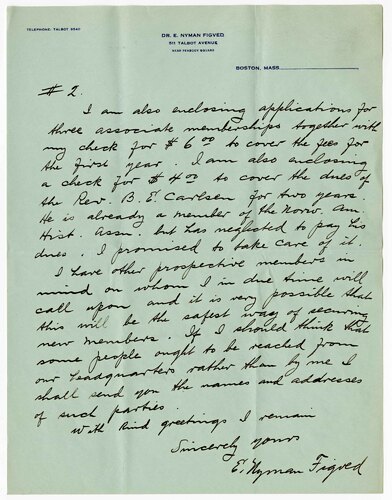 TELEPHONE, TALBOT 9540
DR. E. NYMAN FIGVED
511 TALBOT AVENUE
NEAR PEABODY SQUARE
BOSTON, MASS.
# 2.
I am also enclosing applications for
three associate memberships together with
my check for $ 6 00 to cover the fees for
the first year. I am also enclosing
a check for $ 4 00 to cover the dues of
the Rev. B. E. Carlsen for two years.
He is already a member of the Norw. Am.
Hist. Assn. but has neglected to pay his
dues. I promised to take care of it.
I have other prospective members in
mind on whom I in due time will
call upon and it is very possible that
this will be the safest way of securing
new members. If I should think that
some people ought to be reached from
our headquarters rather then by me I
shall send you the names and addresses
of such parties.
With kind greetings I remain
Sincerely yours
E. Nyman Figved